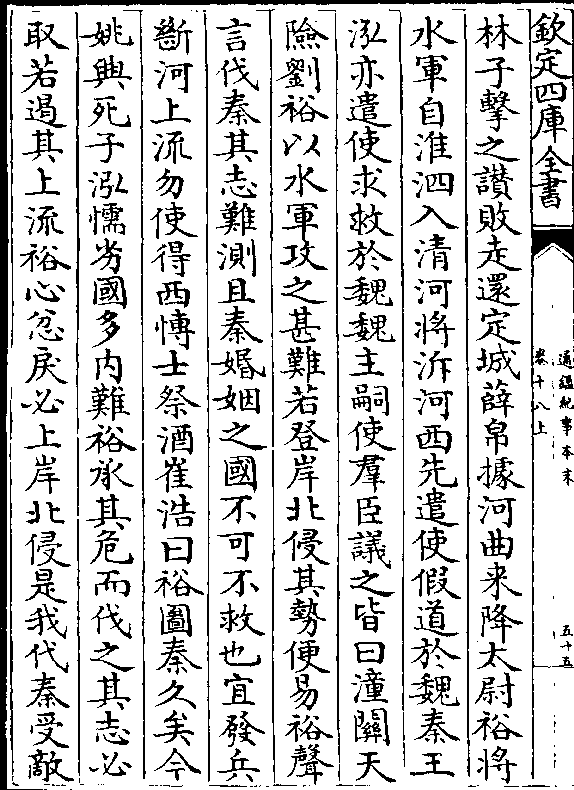 欽定四庫全書
通鑑紀事本末
卷十八上
五十五
林子擊之讃敗走還定城薛帛據河曲来降太尉裕將
水軍自淮泗入清河將泝河西先遣使假道於魏秦王
泓亦遣使求救於魏魏主嗣使羣臣議之皆曰潼關天
險劉裕以水軍攻之甚難若登岸北侵其勢便易裕聲
言伐秦其志難測且秦婚姻之國不可不救也宜發兵
斷河上流勿使得西博士祭酒崔浩曰裕圖秦久矣今
姚興死子泓懦劣國多内難裕承其危而伐之其志必
取若遏其上流裕心忿戾必上岸北侵是我代秦受敵